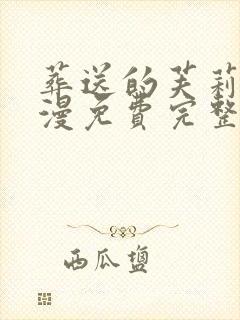 葬送的芙莉
漫免費完整
西瓜鹽